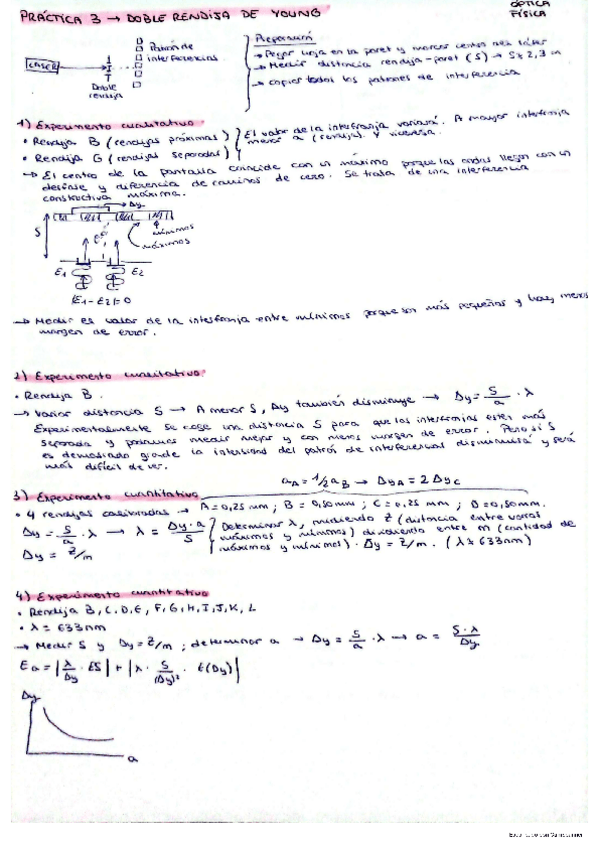 PRÁCTICA 3 → DOBLE RENDIJA DE YOUNG
ÓPTICA
FÍSICA
LÁSER
Doble
rendija
Patrón de
interferencias
Preparación
→ Pegar hoja en la pared y marcar centro del láser
→ Medir distancia rendija-pared (S) → S ≈ 2,3 m
→ Copiar todos los patrones de interferencia
1) Experimento cualitativo
• Rendija B (rendijas próximas)
• Rendija G (rendijas separadas)
El valor de la interfranja variará. A mayor interfranja
menor a (rendija). Y viceversa.
→ El centro de la pantalla coincide con un máximo porque las ondas llegan con un
desfase y diferencia de caminos de cero. Se trata de una interferencia
constructiva máxima.
Δy
S
mínimos
máximos
E1 E2
|E1-E2|=0
→ Medir el valor de la interfranja entre mínimos porque son más pequeños y hay menos
margen de error.
2) Experimento cualitativo
• Rendija B.
→ Variar distancia S → A menor S, Δy también disminuye → Δy = S/a · λ
Experimentalmente se coge una distancia S para que las interfranjas estén más
separada y podamos medir mejor y con menos margen de error. Pero si S
es demasiado grande la intensidad del patrón de interferencias disminuirá y será
más difícil de ver.
aA = 1/2 aB → ΔyA = 2 ΔyC
3) Experimento cuantitativo
• 4 rendijas → A = 0,25 mm ; B = 0,50 mm ; C = 0,25 mm ; D = 0,50 mm.
Δy = S/a · λ → λ = Δy·a/S
Δy = Z/m
Determinar λ, midiendo Z (distancia entre varios
máximos y mínimos) dividiendo entre m (cantidad de
máximos y mínimos). Δy = Z/m. (λ ≈ 633nm)
4) Experimento cuantitativo
• Rendija B, C, D, E, F, G, H, I, J, K, L
• λ = 633nm
→ Medir S y Δy = Z/m ; determinar a → Δy = S/a · λ → a = S·λ/Δy
Ea = |λ/Δy · ES| + |λ · S/(Δy)² · E(Δy)|
Δy
a